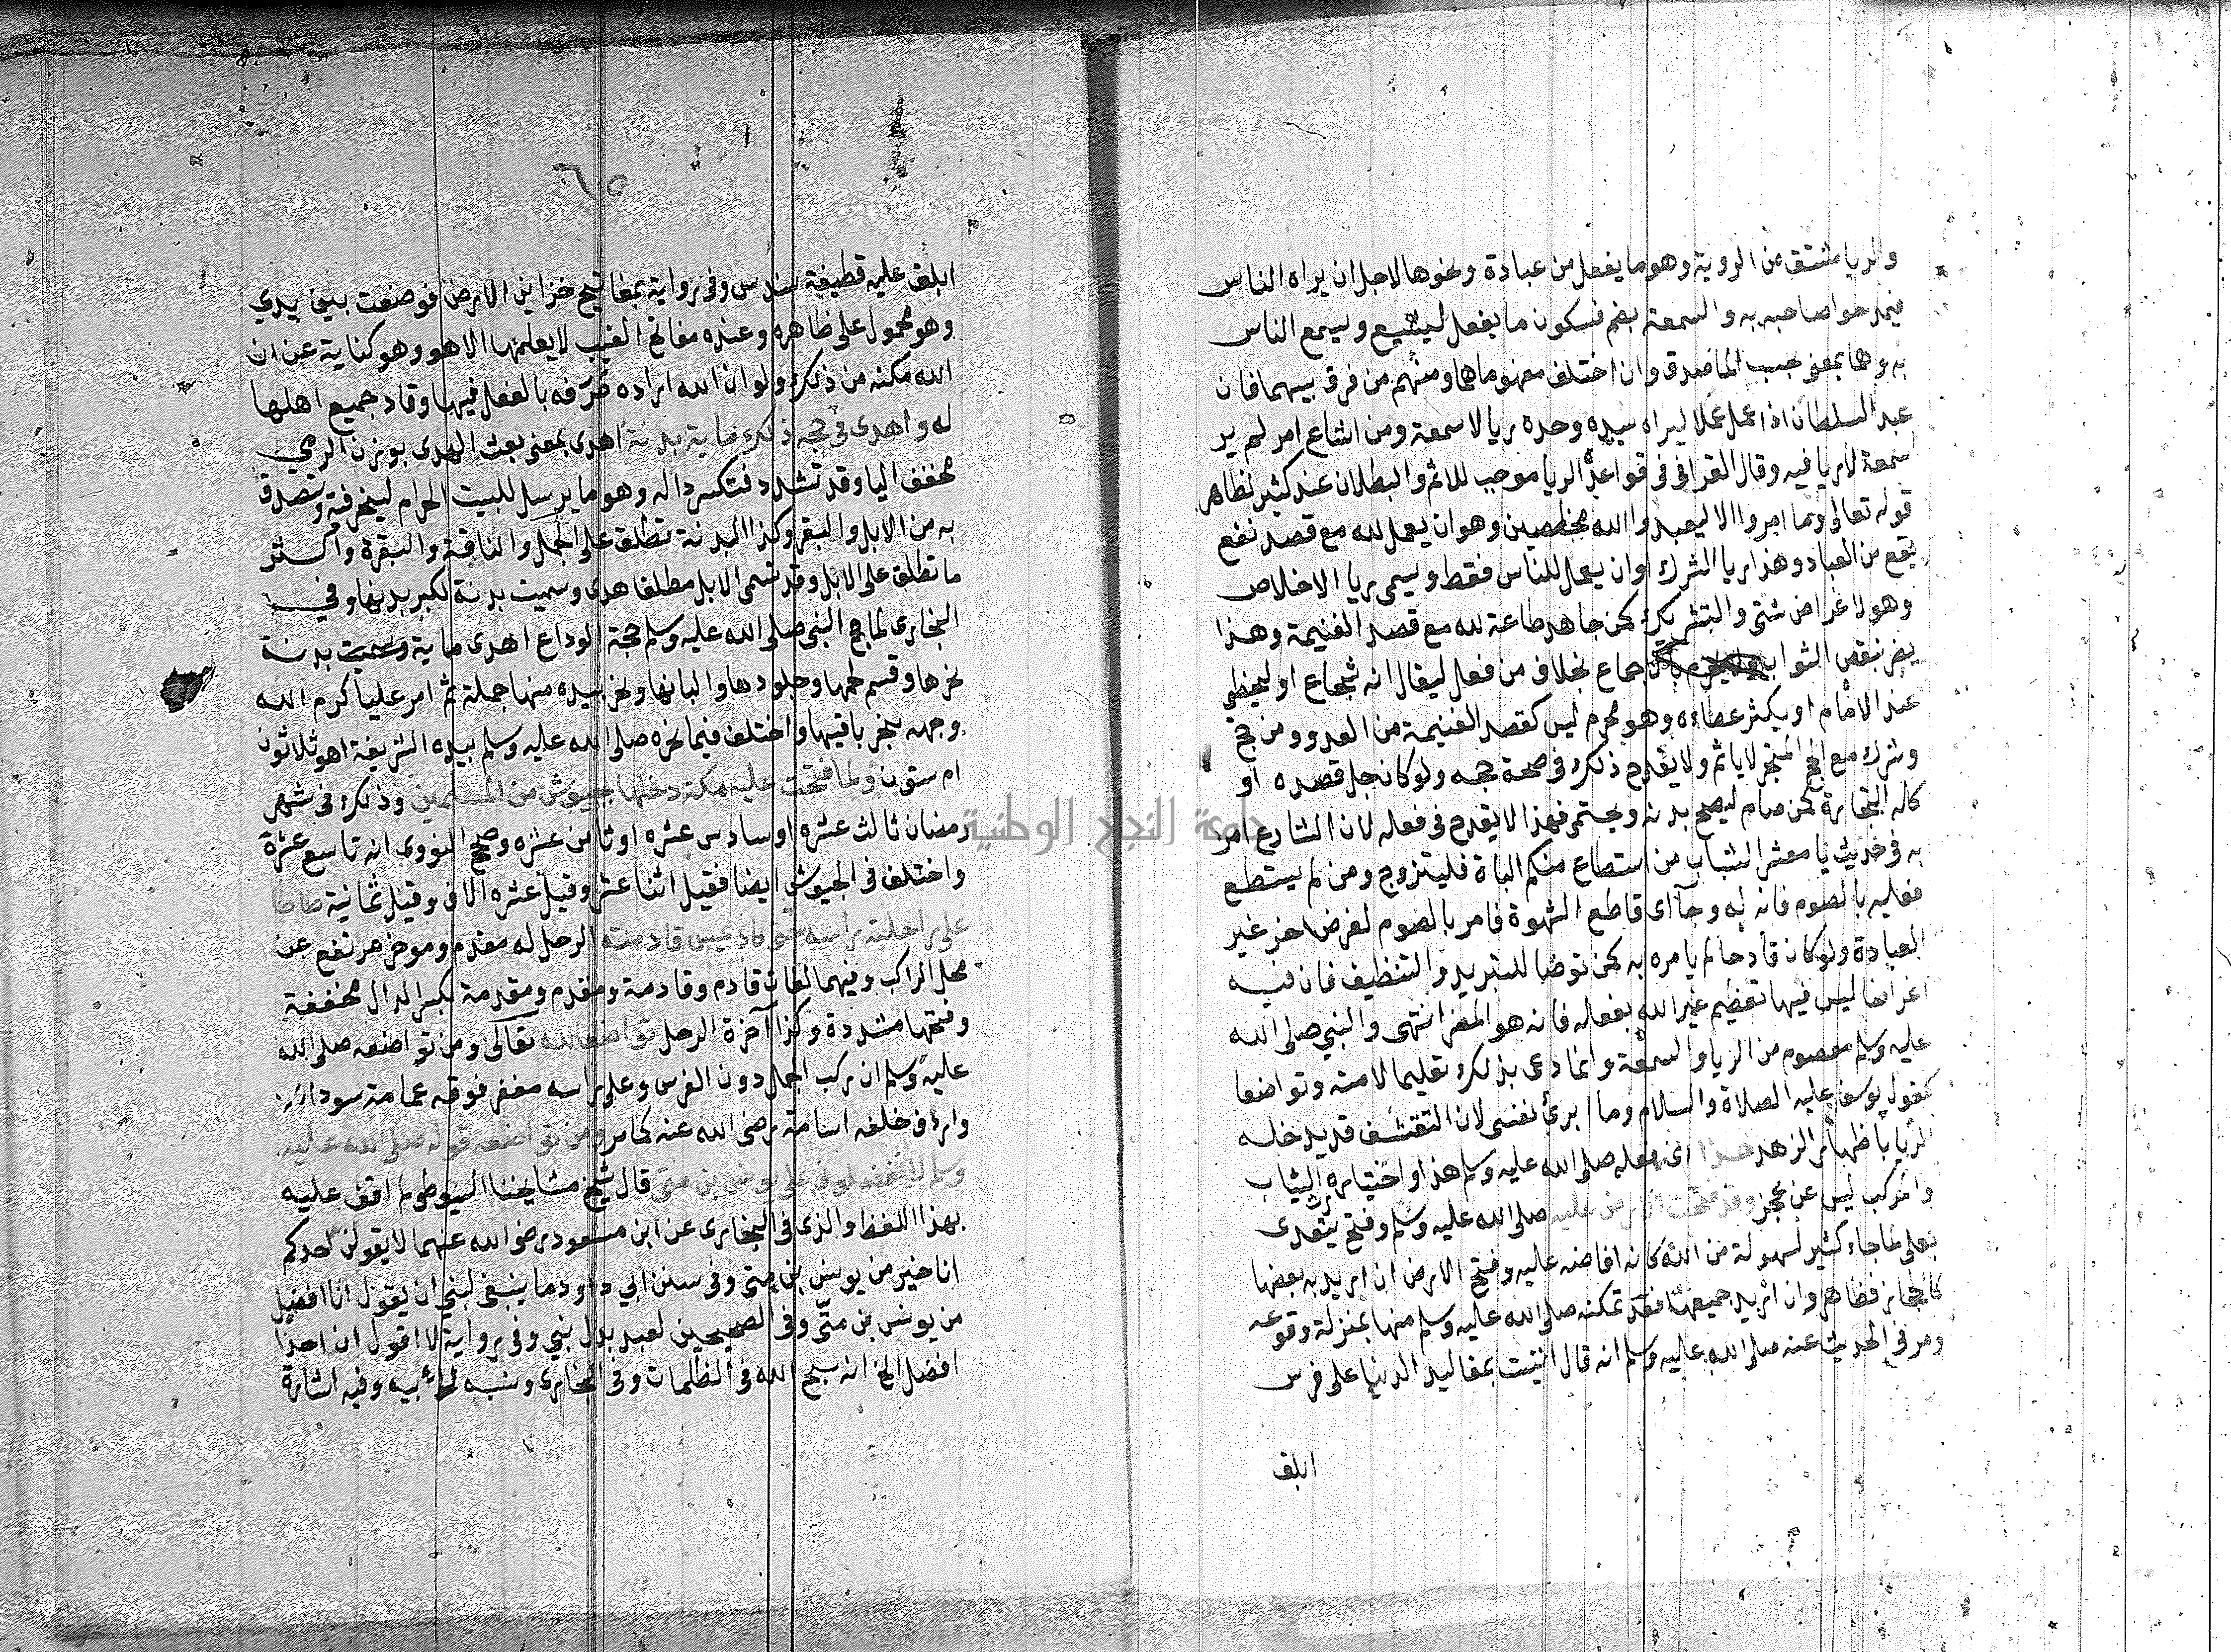 والريا مشتق من الروية وهو ما يفعل من عبادة ونحوها لاجل ان يراه الناس
فيمدحوا صاحبه به والسمعة بضم فسكون ما يفعل ليشيع ويسمع الناس
به وهما بمعنى بحسب الماصدق وان اختلف مفهوماهما ومنهم من فرق بينهما فان
عبد السلطان اذا عمل عملا ليراه سيده وحده ريا لا سمعة ومن اشاع امر لم ير
سمعة لا ريا فيه وقال القرافي في قواعده الريا موجب للاثم والبطلان عند كثير لظاهر
قوله تعالى وما امروا الا ليعبدوا الله مخلصين وهو ان يعمل لله مع قصد نفع
يقع من العباد وهذا ريا الشرك او ان يعمل للناس فقط ويسمى ريا الاخلاص
وهو لاغراض شتى والتشريك كمن جاهد طاعة لله مع قصد الغنيمة وهذا
يضر بنقص الثواب جماع بخلاف من فعل ليقال انه شجاع او ليحظى
عند الامام او يكثر عطاءه وهو محرم ليس كقصد الغنيمة من العدو ومن حج
وشرك مع الحج المتجر لا ياثم ولا يقدح ذلك في صحة حجه ولو كان جل قصده او
كله التجارة كمن صام ليصح بدنه ويستمر فهذا لا يقدح في فعله لان الشارع امر
به في حديث يا معشر الشباب من استطاع منكم الباة فليتزوج ومن لم يستطع
فعليه بالصوم فانه له وجآ اى قاطع الشهوة فامر بالصوم لغرض اخر غير
العبادة ولو كان قادحا لم يامره به كمن توضا للتبريد والتنظيف فان فيه
اغراضا ليس فيها تعظيم غير الله بفعاله فانه هو المضر انتهى والنبي صلى الله
عليه وسلم معصوم من الريا والسمعة وانما دعى بذلك تعليما لامته وتواضعا
كقول يوسف عليه الصلاة والسلام وما ابرئ نفسى لان التقشف قد يدخله
الريا باظهار الزهد هذا اى فعله صلى الله عليه وسلم هذا واختياره الثياب
والمركب ليس عن عجز وقد فتحت الارض عليه صلى الله عليه وسلم وفتح يتعدى
بعلى لما جاء كثير لسهولة من الله كانه افاضه عليه وفتح الارض ان اريد به بعضها
كالحجاز فظاهر وان اريد جميعها فقد تمكنه صلى الله عليه وسلم منها بمنزلة وقوعه
ومر في الحديث عنه صلى الله عليه وسلم انه قال اتيت بمقاليد الدنيا على فرس
ابلق
٦٥
ابلق عليه قطيفة سندس وفى رواية بمفاتيح خزاين الارض فوضعت بين يدي
وهو محمول على ظاهره وعنده مفاتح الغيب لا يعلمها الا هو وهو كناية عن ان
الله مكنه من ذلك ولو ان الله اراده صرفه بالفعل فيها وقاد جميع اهلها
له واهدى في حجه ذلك ماية بدنة اهدى بمعنى بعث الهدى بوزن الرمي
مخفف اليا وقد تشدد فتكسر داله وهو ما يرسل للبيت الحرام لينحر فيه ويتصدق
به من الابل والبقر وكذا البدنة تطلق على الجمل والناقة والبقرة واكثر
ما تطلق على الابل وقد تسمى الابل مطلقا هدى وسميت بدنة لكبر بدنها وفي
البخارى لما حج النبى صلى الله عليه وسلم حجة الوداع اهدى ماية بدنة
نحرها وقسم لحمها وجلودها والبانها ونحر بيده منها جملة ثم امر عليا كرم الله
وجهه بنحر باقيها واختلف فيما نحره صلى الله عليه وسلم بيده الشريفة اهو ثلاثون
ام ستون ولما فتحت عليه مكة دخلها بجيوش من المسلمين وذلك في شهر
رمضان ثالث عشره او سادس عشره او ثامن عشره وصحح النووى انه تاسع عشرة
واختلف في الجيوش ايضا فقيل اثنا عشر وقيل عشره الاف وقيل ثمانية طاطا
على راحلته راسه حتى كاد يمس قادمته الرحل له مقدم وموخر مرتفع عن
محل الراكب وفيهما لغات قادم وقادمة ومقدم ومقدمة بكسر الدال مخففة
وفتحها مشددة وكذا آخرة الرحل تواضعا لله تعالى ومن تواضعه صلى الله
عليه وسلم ان ركب الجمل دون الفرس وعلى راسه مغفر فوقه عمامة سوداء
واردف خلفه اسامة رضى الله عنه كما مر ومن تواضعه قوله صلى الله عليه
وسلم لا تفضلونى على يونس بن متى قال شيخ مشايخنا السيوطى لم اقف عليه
بهذا اللفظ والذى في البخارى عن ابن مسعود رضى الله عنهما لا يقولن احدكم
انا خير من يونس بن متى وفى سنن ابي داود ما ينبغى لنبي ان يقول انا افضل
من يونس بن متى وفى الصحيحين لعبد بدل نبي وفى رواية لا اقول ان احدا
افضل الخ انه سبح الله فى الظلمات وفى البخارى ونسبه لابيه وفيه اشارة
جامعة النجاح الوطنية